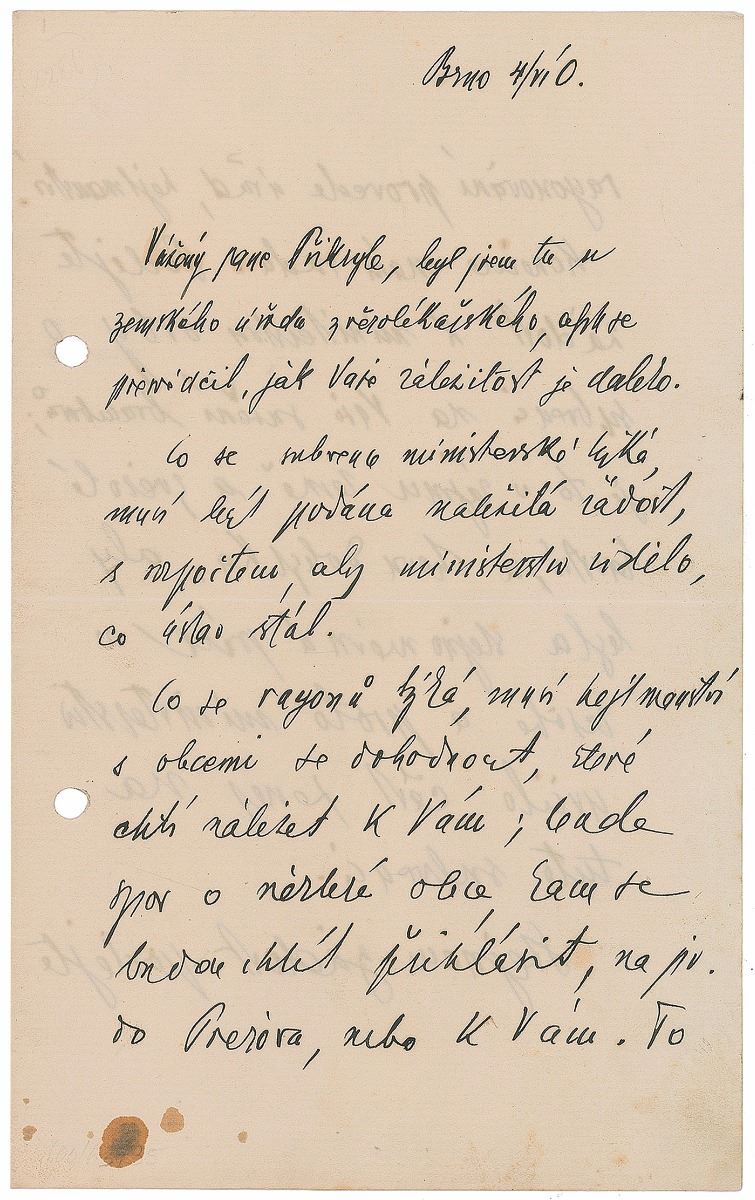 Brno 4/VI 0.
Vážený pane Přikryle, byl jsem tu u
zemského úřadu zvěrolékařského, abych se
přesvědčil, jak Vaše záležitost je daleko.
Co se subvence ministerské týká,
musí být podána náležitá žádost,
s rozpočtem, aby ministerstvo vidělo,
co ústav stál.
Co se rayonů týká, musí hejtmanství
s obcemi se dohodnout, které
chtí náležet k Vám; bude
spor o některé obce, kam se
budou chtít přihlásit, na př.
do Přerova, nebo k Vám. To